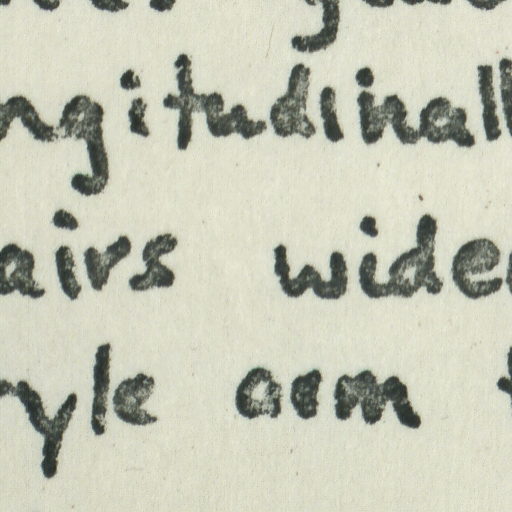 ngitudinall
airs wider
ryle arm